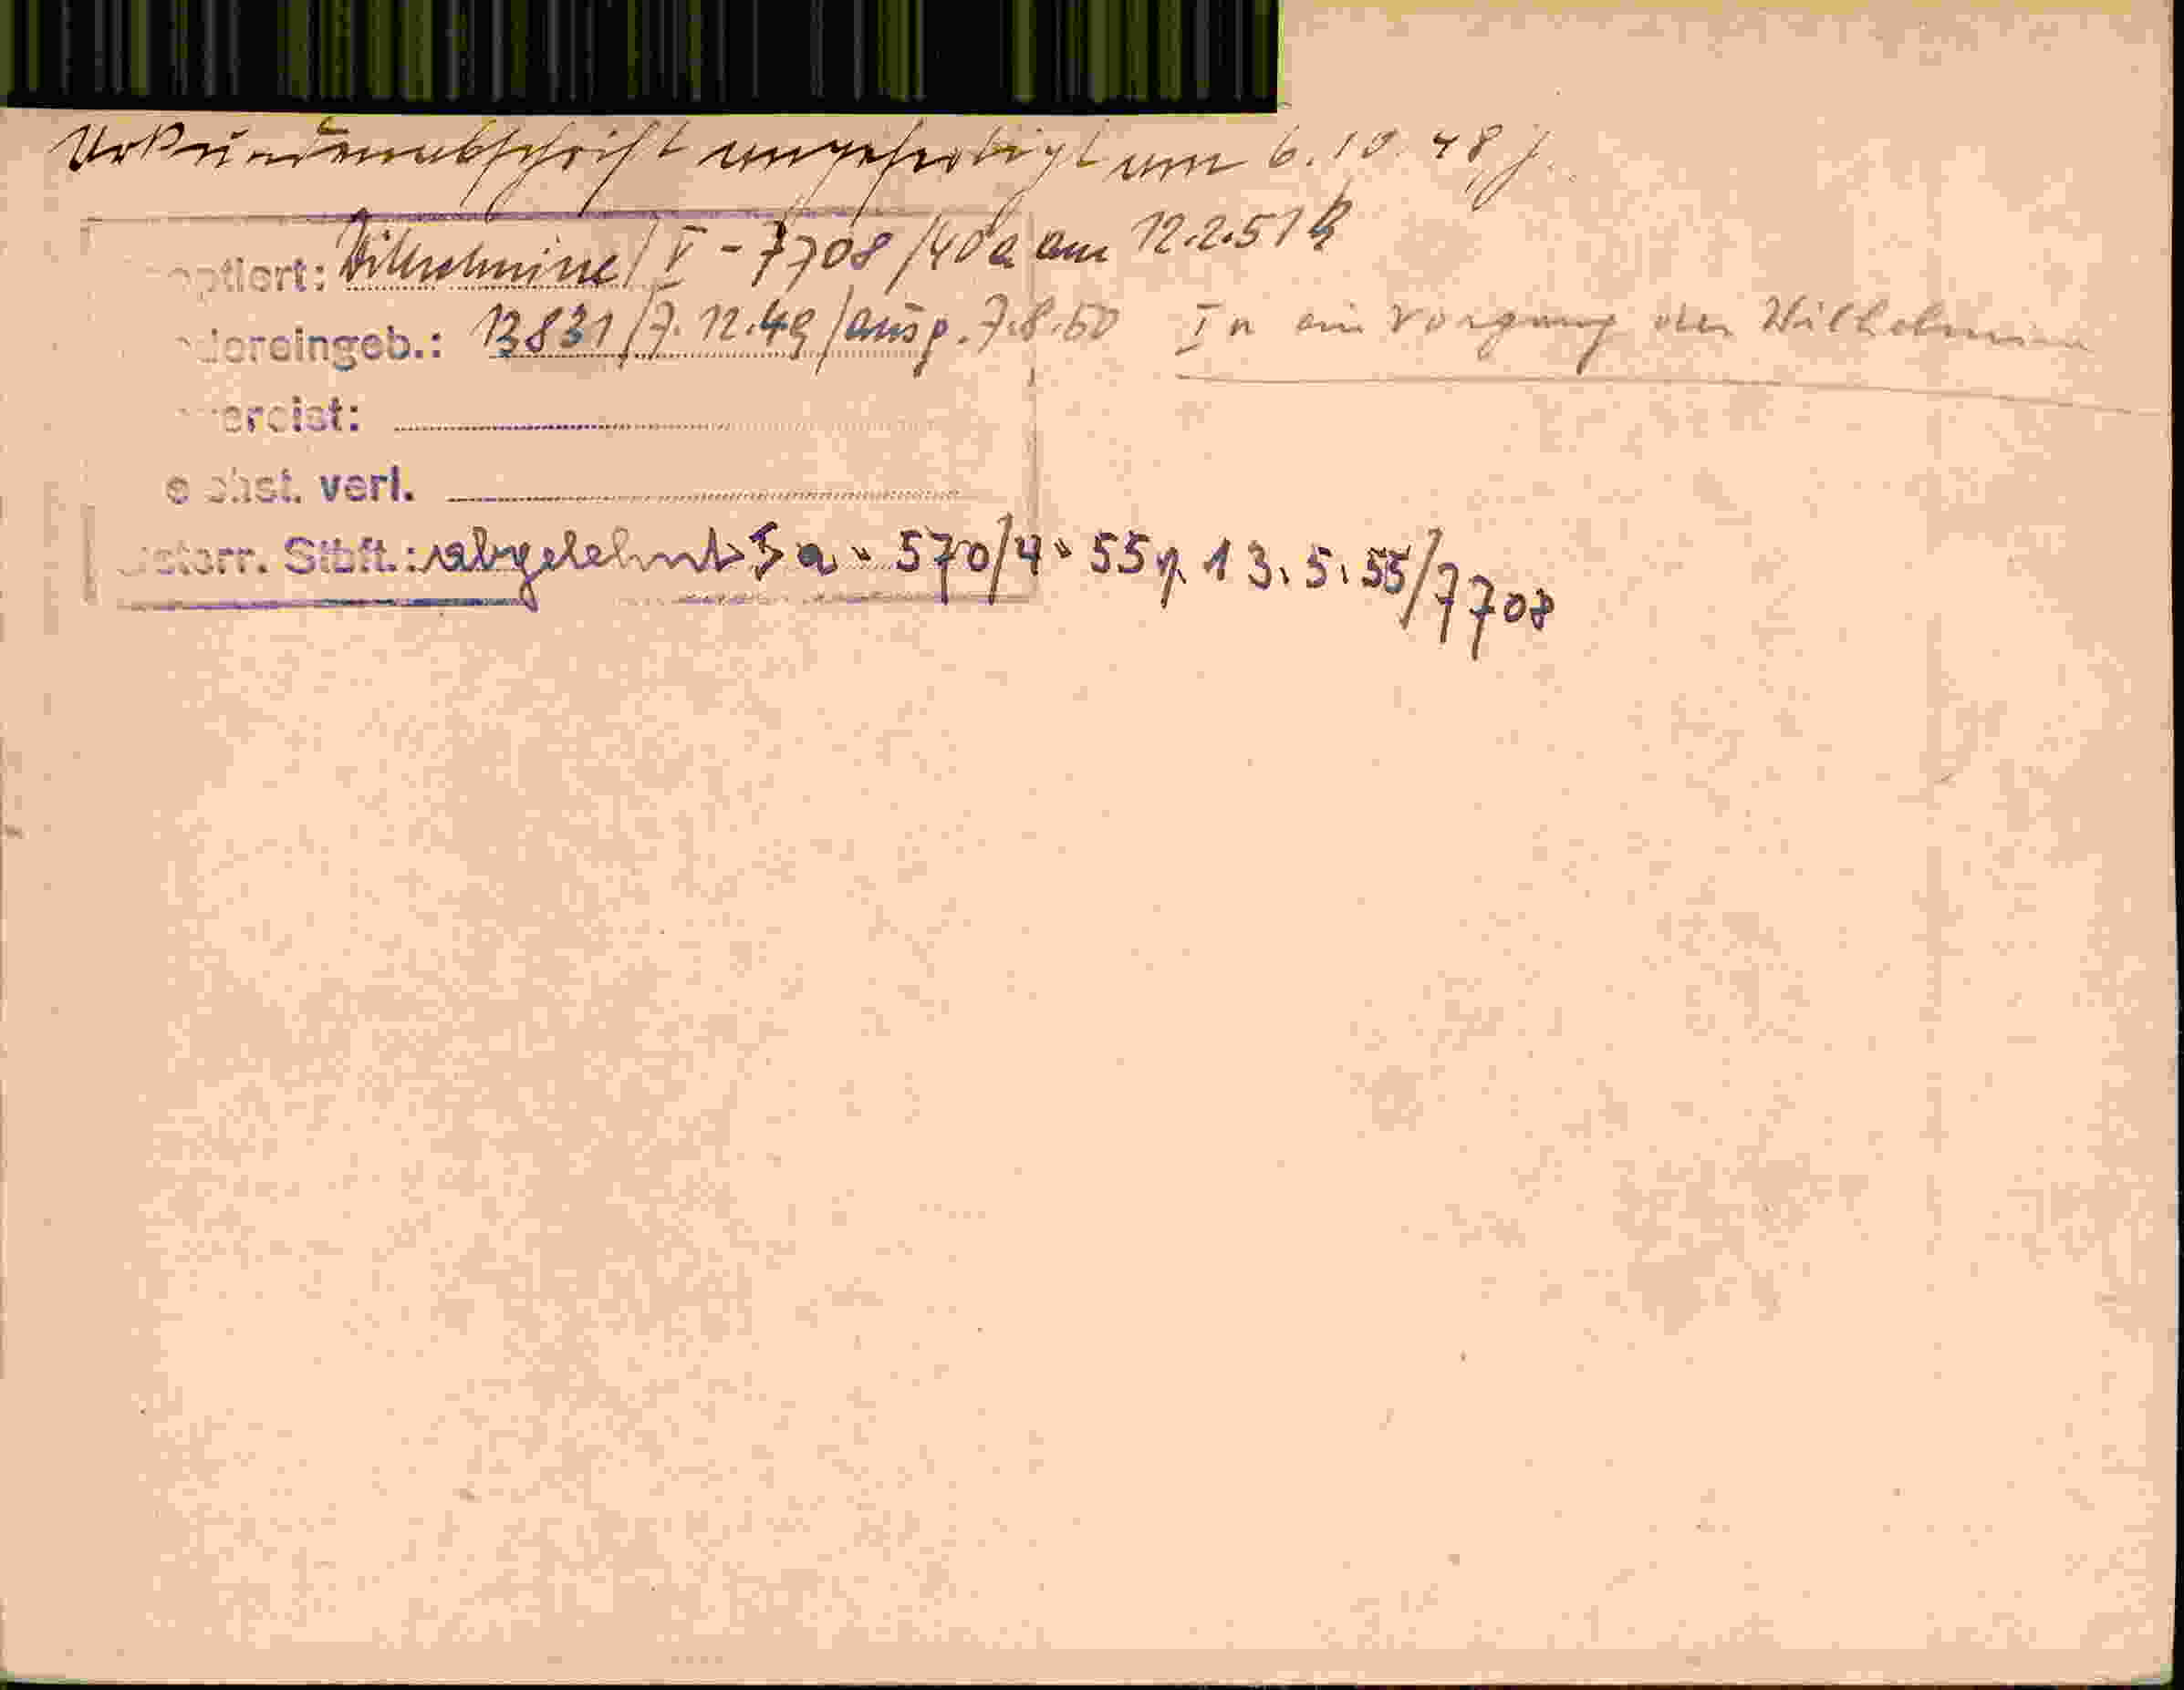 Urkundenabschrift angefertigt am 6.10.48 J.
optiert: Wilhelmine / V - 7708/40a am 12.2.51
dereingeb.: 13831/7.12.49/ausg. 7.8.50 In ein Vorgang der Wilhelmine
ereist:
chst. verl.
sterr. Stbft.: abgelehnt 5a - 570/4 - 55 v. 13.5.55/7708